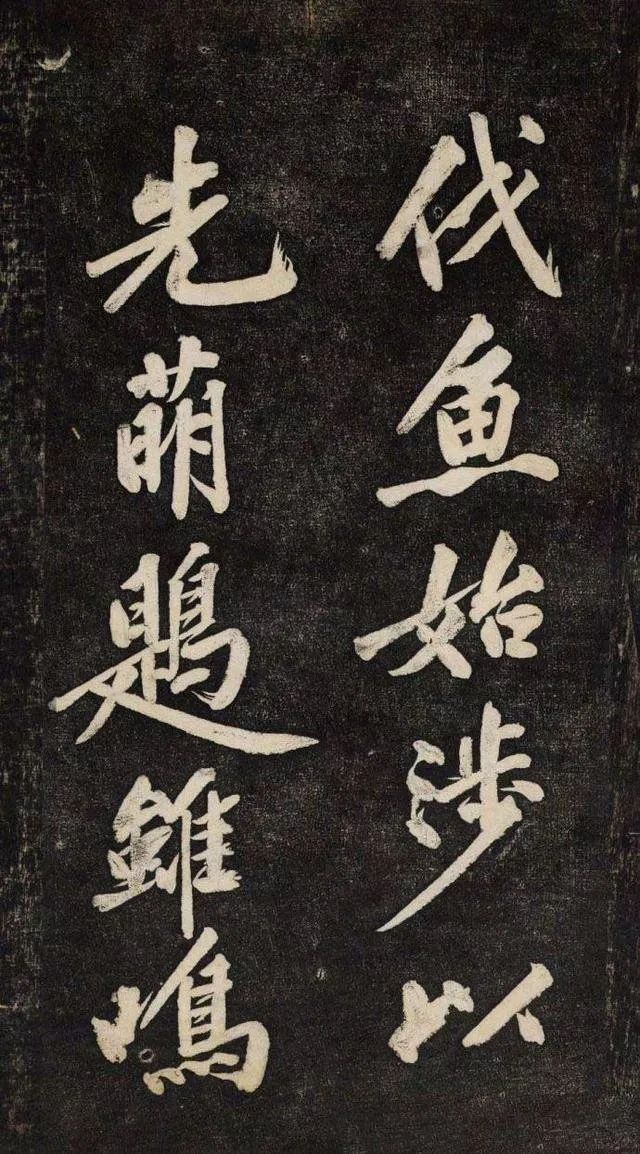 伐鱼始涉以
先萌鶗雖鳴